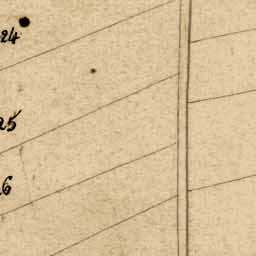 24
25
26